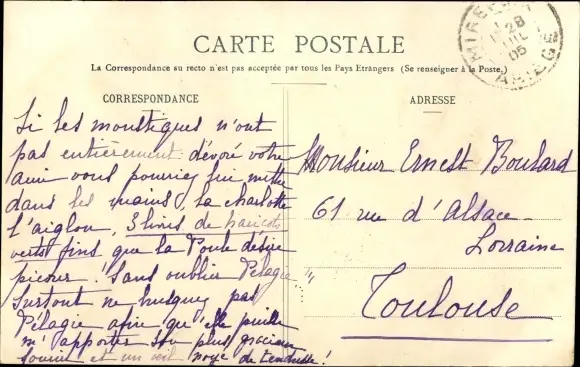 CARTE POSTALE
La Correspondance au recto n'est pas acceptée par tous les Pays Etrangers (Se renseigner à la Poste.)
CORRESPONDANCE
Si les moustiques n'ont
pas entièrement dévoré votre
amie vous pourriez lui mettre
dans les mains, la charlotte
l'aiglon, 3 livres de haricots
verts fins que la Poule désire
picorer. Sans oublier Pélagie
Surtout ne busquez pas
Pélagie afin qu'elle puisse
m'apporter son plus gracieux
sourire et un œil noyé de tendresse!
ADRESSE
Monsieur Ernest Boulard
61 rue d'Alsace-
Lorraine
Toulouse
28
JUIL
05
ARIEGE